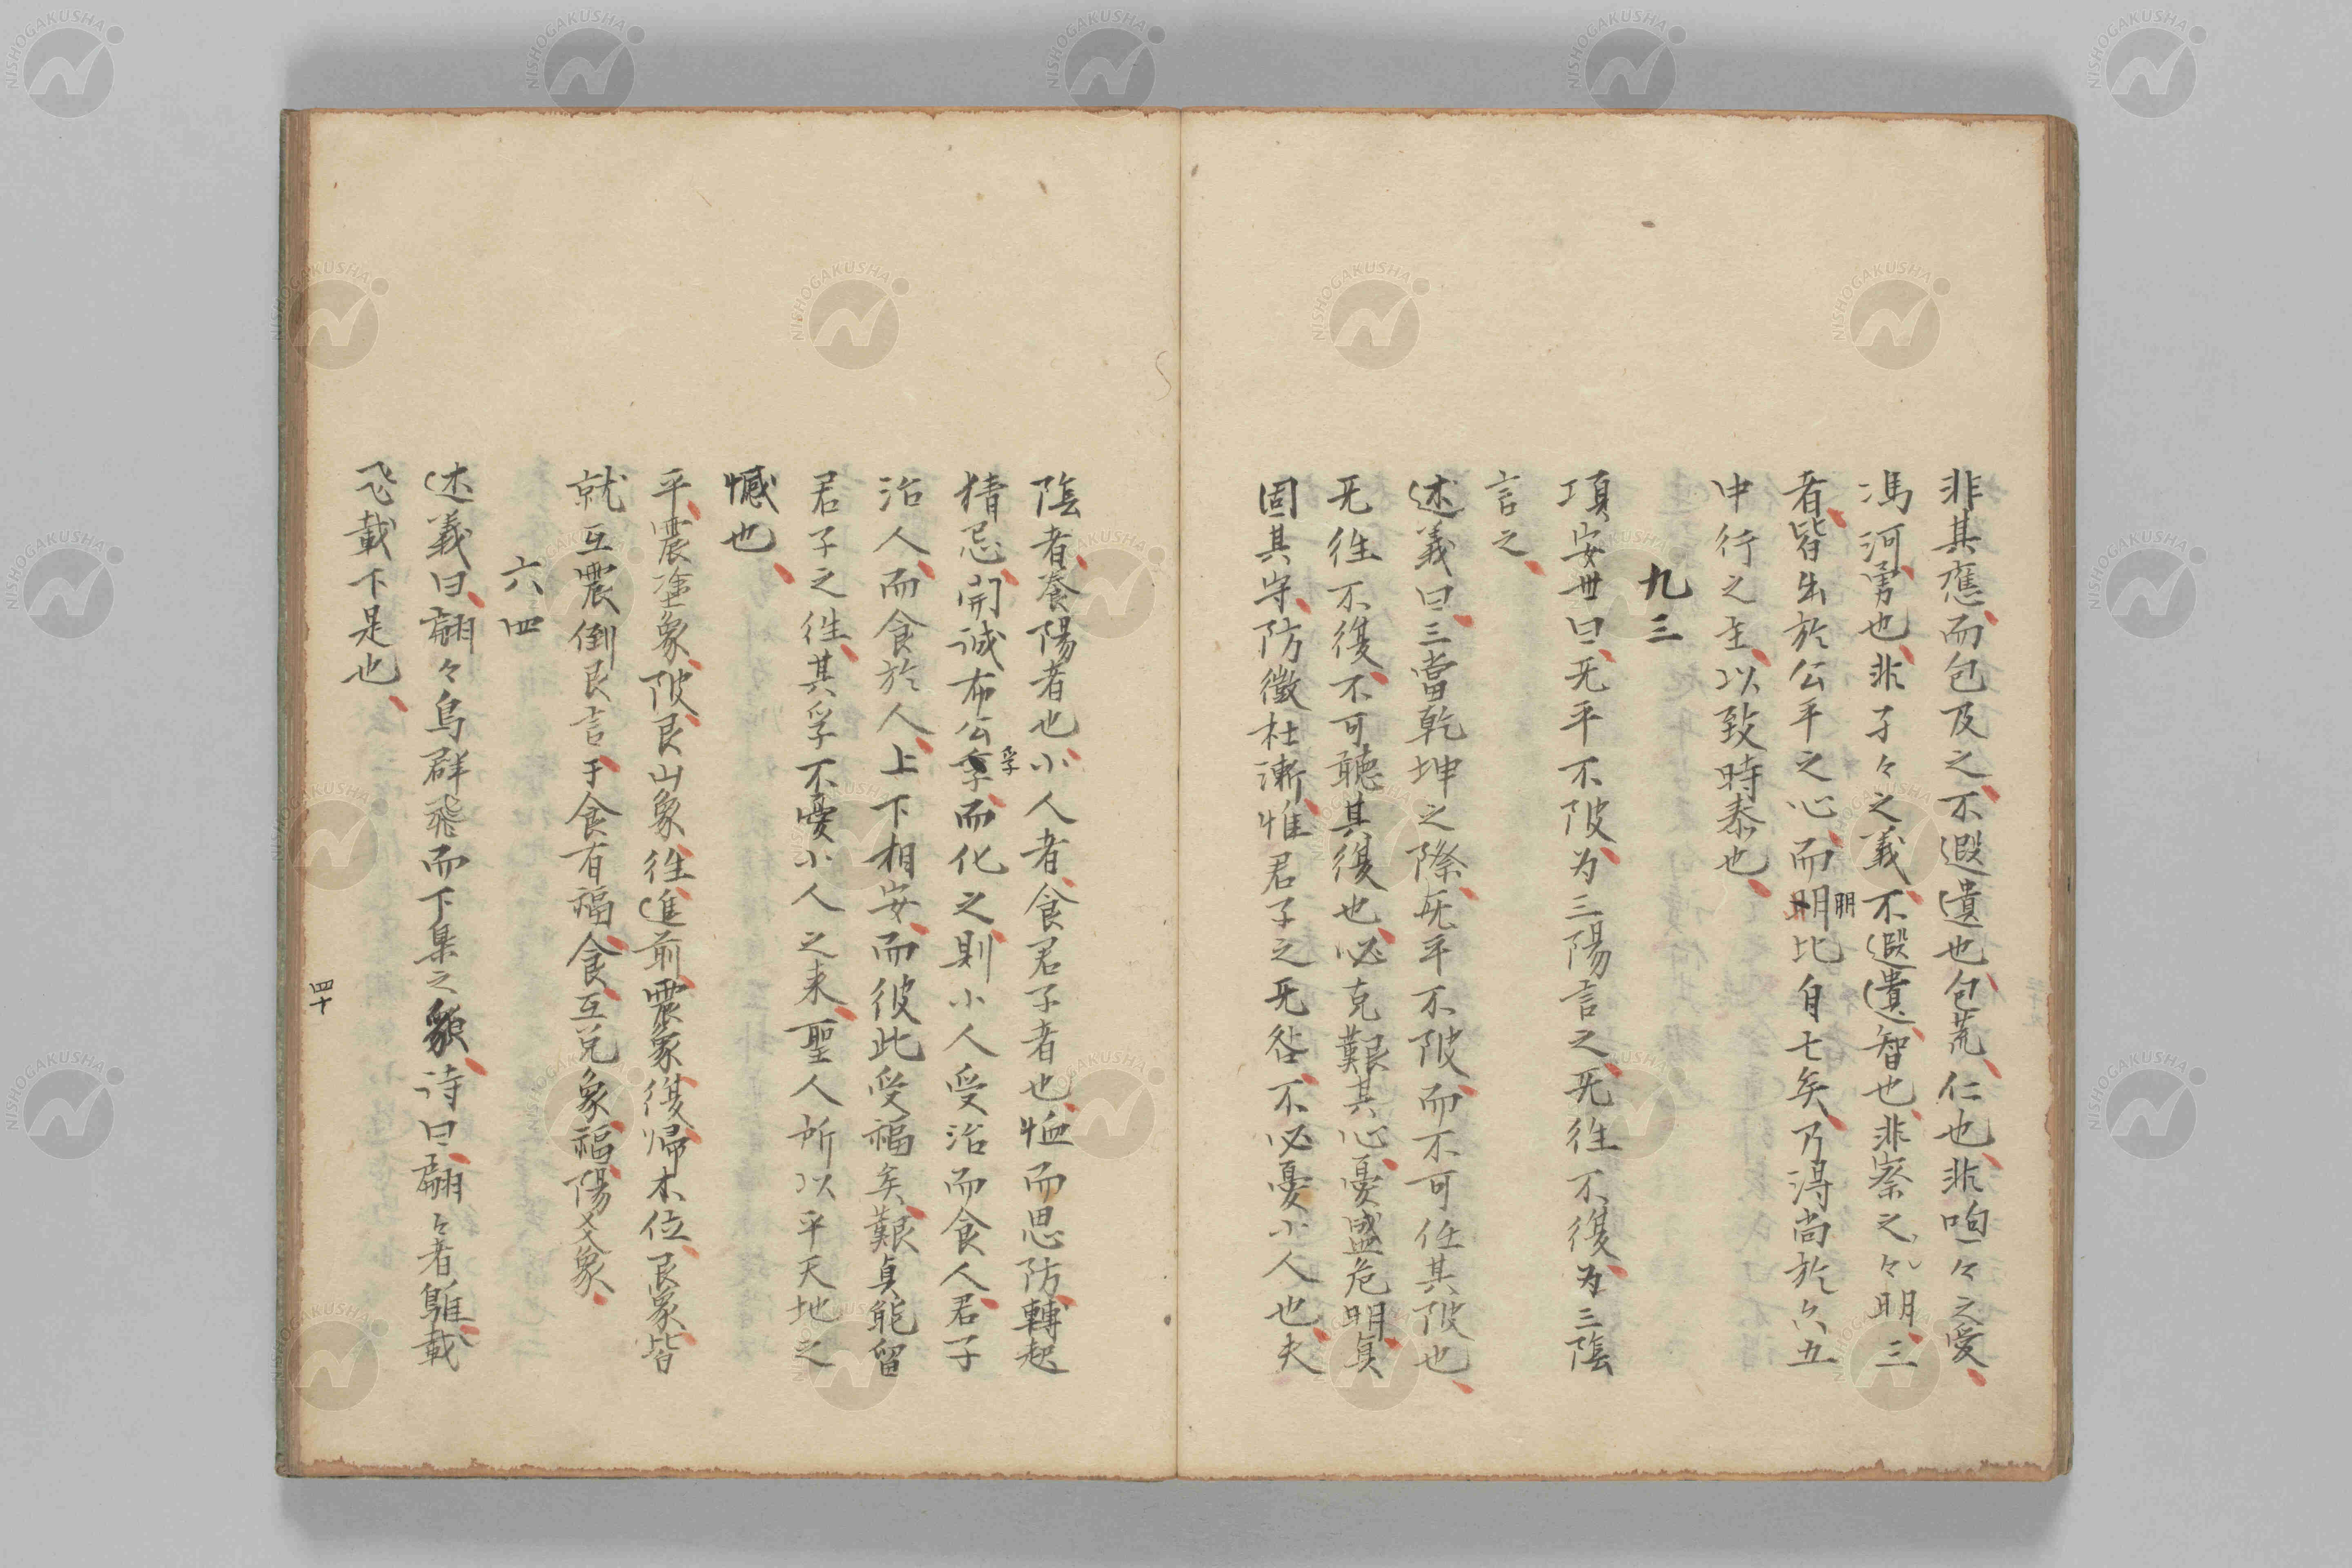 非其應而包及之不遐遺也包荒仁也非呴々之愛
馮河勇也非孑々之義不遐遺智也非察之々明三
者皆出於公平之心而明比自亡矣乃得尚於六五
明
中行之主以致時泰也
九三
項安世曰无平不陂为三陽言之无往不復为三陰
言之
述義曰三當乾坤之際旡平不陂而不可任其陂也
无往不復不可聽其復也必克艱其心憂盛危明貞
固其守防微杜漸惟君子之无咎不必憂小人也夫
陰者養陽者也小人者食君子者也恤而思防轉起
猜忌開誠布公孚而化之則小人受治而食人君子
孚
治人而食於人上下相安而彼此受福矣艱貞能留
君子之往其孚不憂小人之来聖人所以平天地之
憾也
平震塗象陂艮山象往進前震象復帰本位艮象皆
就互震倒艮言于食有福食互兌象福陽爻象
六四
述義曰翩々鳥群飛而下集之貌詩曰翩々者鵻載
飛載下是也
四十
NISHOGAKUSHA